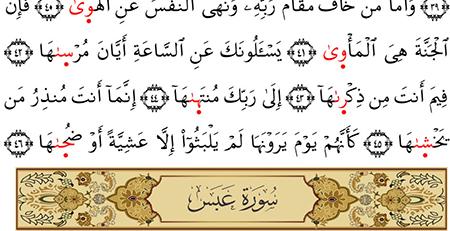 ﴿٣٩﴾ وَأَمَّا مَنْ خَافَ مَقَامَ رَبِّهِۦ وَنَهَى ٱلنَّفْسَ عَنِ ٱلْهَوَىٰ ﴿٤٠﴾ فَإِنَّ
ٱلْجَنَّةَ هِىَ ٱلْمَأْوَىٰ ﴿٤١﴾ يَسْـَٔلُونَكَ عَنِ ٱلسَّاعَةِ أَيَّانَ مُرْسَىٰهَا ﴿٤٢﴾
فِيمَ أَنتَ مِن ذِكْرَىٰهَآ ﴿٤٣﴾ إِلَىٰ رَبِّكَ مُنتَهَىٰهَآ ﴿٤٤﴾ إِنَّمَآ أَنتَ مُنذِرُ مَن
يَخْشَىٰهَا ﴿٤٥﴾ كَأَنَّهُمْ يَوْمَ يَرَوْنَهَا لَمْ يَلْبَثُوٓا۟ إِلَّا عَشِيَّةً أَوْ ضُحَىٰهَا ﴿٤٦﴾
سُورَةُ عَبَسَ